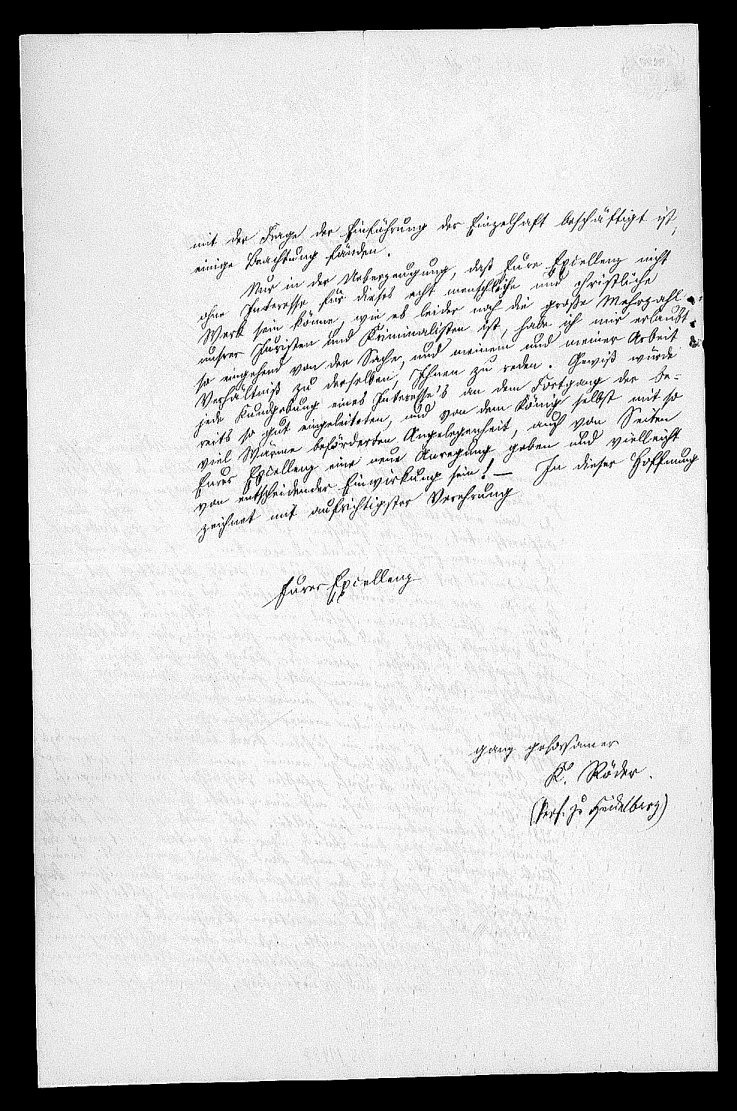 mit der Frage der Einführung der Einzelhaft beschäftigt ist,
einige Beachtung fänden.
Nur in der Ueberzeugung, daß Eure Excellenz nicht
ohne Interesse für dieses echt menschliche und christliche
Werk sein könne, wie es leider noch die große Mehrzahl
unsrer Juristen und Kriminalisten ist, habe ich mir erlaubt
so eingehend von der Sache, und meinem und meiner Arbeit
Verhältniß zu derselben, Ihnen zu reden. Gewiß würde
jede Kundgebung eines Interesse's an dem Fortgang der be-
reits so gut eingeleiteten, und von dem König selbst mit so
viel Wärme beförderten Angelegenheit, auch von Seiten
Eurer Excellenz eine neue Anregung geben und vielleicht
von entscheidender Einwirkung sein! — In dieser Hoffnung
zeichnet mit aufrichtigster Verehrung
Eurer Excellenz
ganz gehorsamer
K. Röder.
(Prof. zu Heidelberg)